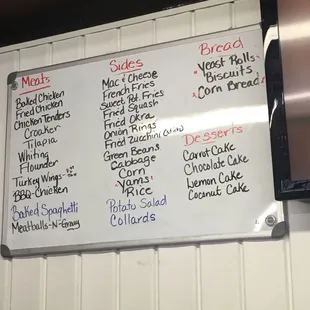 Meats
Baked Chicken
Fried Chicken
Chicken Tenders
Croaker
Tilapia
Whiting
Flounder
Turkey Wings
BBQ-Chicken
Baked Spaghetti
Meatballs-N-Gravy
Sides
Mac & Cheese
French Fries
Sweet Pot. Fries
Fried Squash
Fried Okra
Onion Rings
Fried Zucchini
Green Beans
Cabbage
Corn
Yams
Rice
Potato Salad
Collards
Bread
Yeast Rolls
Biscuits
Corn Bread
Desserts
Carrot Cake
Chocolate Cake
Lemon Cake
Coconut Cake